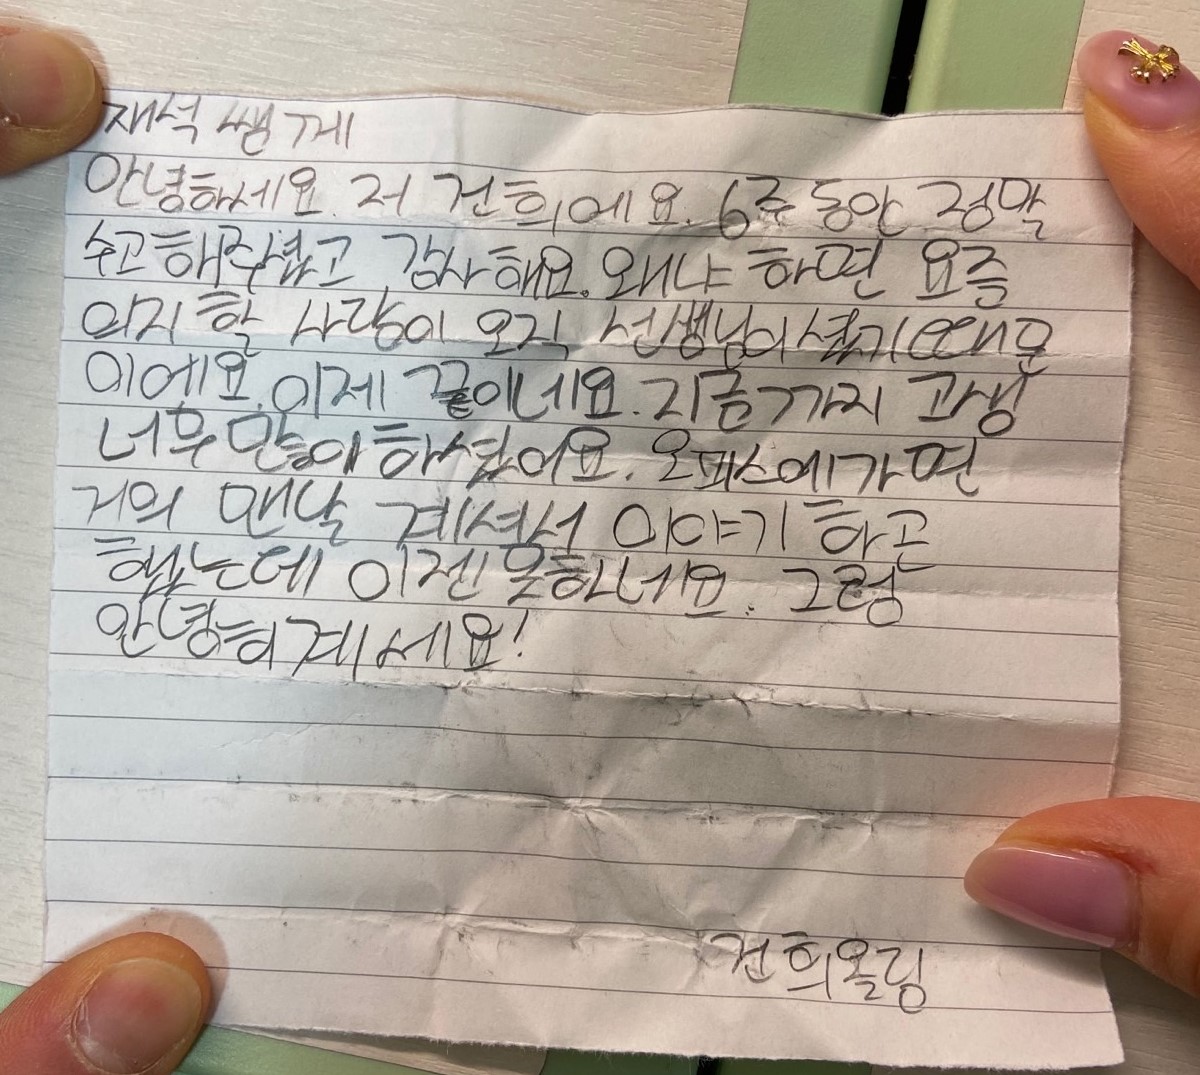 재석 쌤께
안녕하세요. 저 건희에요. 6주 동안 정말
수고 해주셨고, 감사해요. 왜냐 하면 요즘
의지 할 사람이 오직 선생님이셨기때문
이에요. 이제 끝이네요. 지금까지 고생
너무 많이 하셨어요. 오피스에가면
거의 맨날 계셔서 이야기 하곤
했는데 이젠 못하네요. 그럼
안녕히계세요!
건희올림